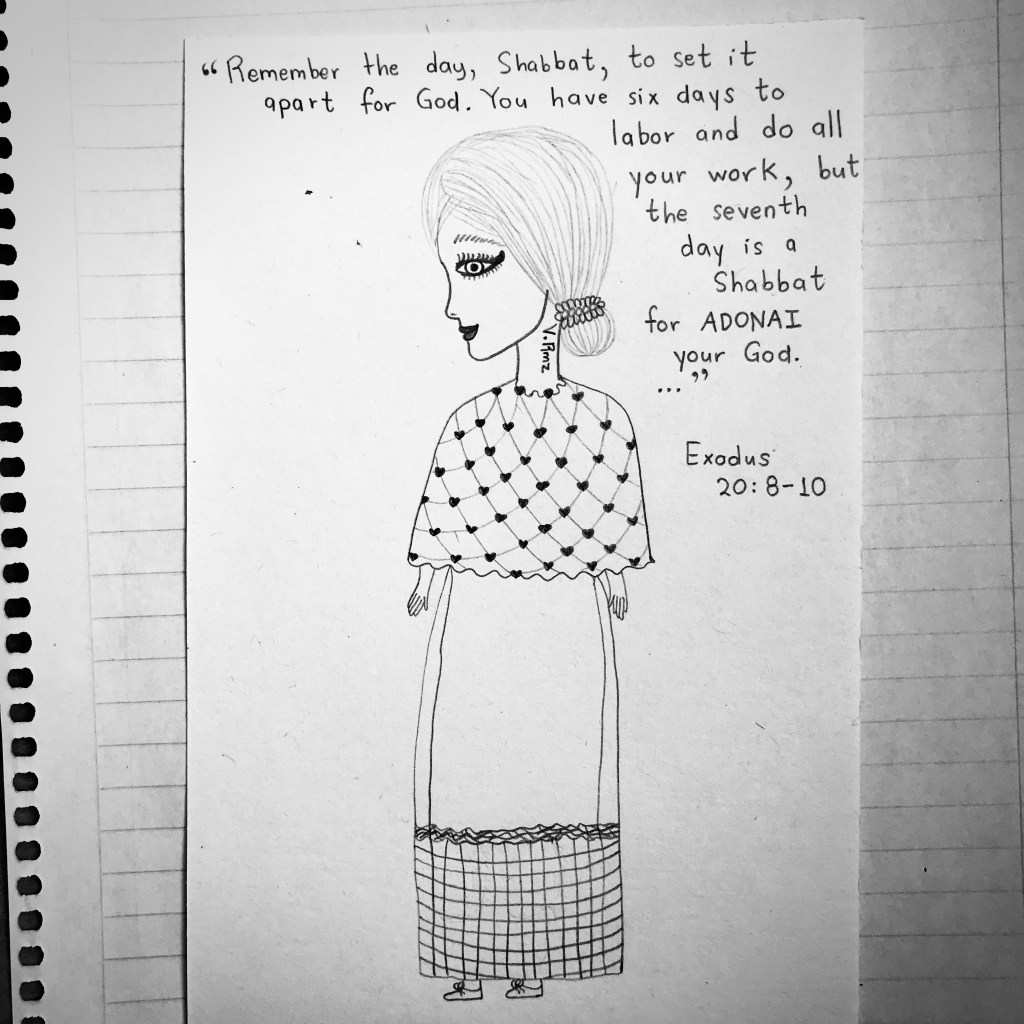 “Remember the day, Shabbat, to set it
apart for God. You have six days to
labor and do all
your work, but
the seventh
day is a
Shabbat
for ADONAI
your God.
...”
Exodus
20:8-10
V.Rmz